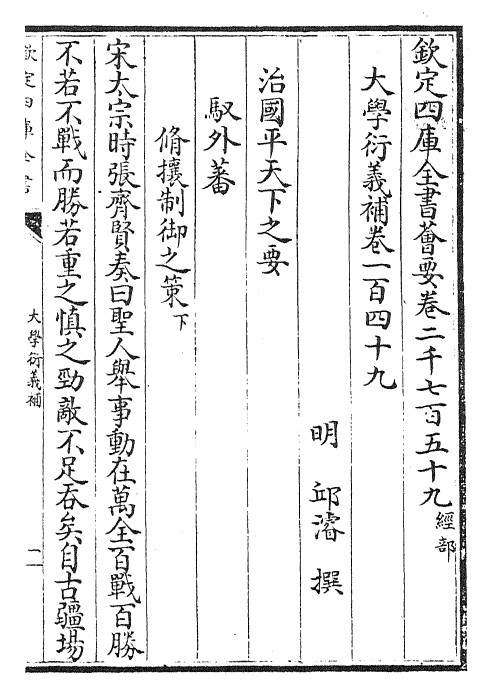 欽定四庫全書薈要卷二千七百五十九經部
大學衍義補卷一百四十九
明 邱濬 撰
治國平天下之要
馭外蕃
脩攘制御之策下
宋太宗時張齊賢奏曰聖人舉事動在萬全百戰百勝
不若不戰而勝若重之慎之勁敵不足吞矣自古疆場
欽定四庫全書
大學衍義補
一